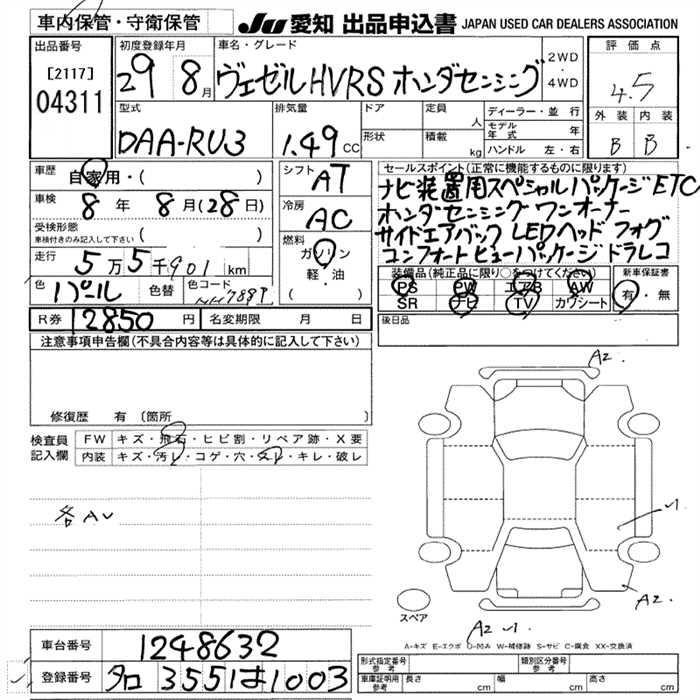 車内保管・守衛保管
JU 愛知 出品申込書 JAPAN USED CAR DEALERS ASSOCIATION
出品番号
[2117]
04311
初度登録年月
29 8月
車名・グレード
ヴェゼルHVRS ホンダセンシング
2WD
・
4WD
評価点
4.5
外装 内装
B B
型式
DAA-RU3
排気量
1.49 CC
ドア
形状
定員
人
積載
kg
ディーラー・並行
モデル年式 年
ハンドル 左・右
車歴
自家用・( )
車検
8年 8月(28日)
受検形態
車検付きのみ記入して下さい ( )
走行
5万5千901km
色
パール
色替
色コード
NH788P
シフト
AT
冷房
AC
燃料
ガソリン
軽・油
( )
セールスポイント(正常に機能するものに限ります)
ナビ装置用スペシャルパッケージ ETC
ホンダセンシング ワンオーナー
サイドエアバック LEDヘッド フォグ
コンフォートビューパッケージ ドラレコ
装備品(純正品に限り○をつけてください)
PS PW エアB AW
SR ナビ TV カワシート
新車保証書
有・無
後日品
R券 12850円
名変期限 月 日
注意事項申告欄(不具合内容等は具体的に記入して下さい)
修復歴 有(箇所
検査員
記入欄
FW キズ・飛石・ヒビ割・リペア跡・X要
内装 キズ・汚レ・コゲ・穴・スレ・キレ・破レ
各AU
A2
A2
A2
スペア
A-キズ E-エクボ U-凹み W-補修跡 S-サビ C-腐食 XX-交換済
車台番号
1248632
登録番号
3551は1003
形式指定番号
参考
類別区分番号
参考
車庫証明用
参考
長さ cm
幅 cm
高さ cm